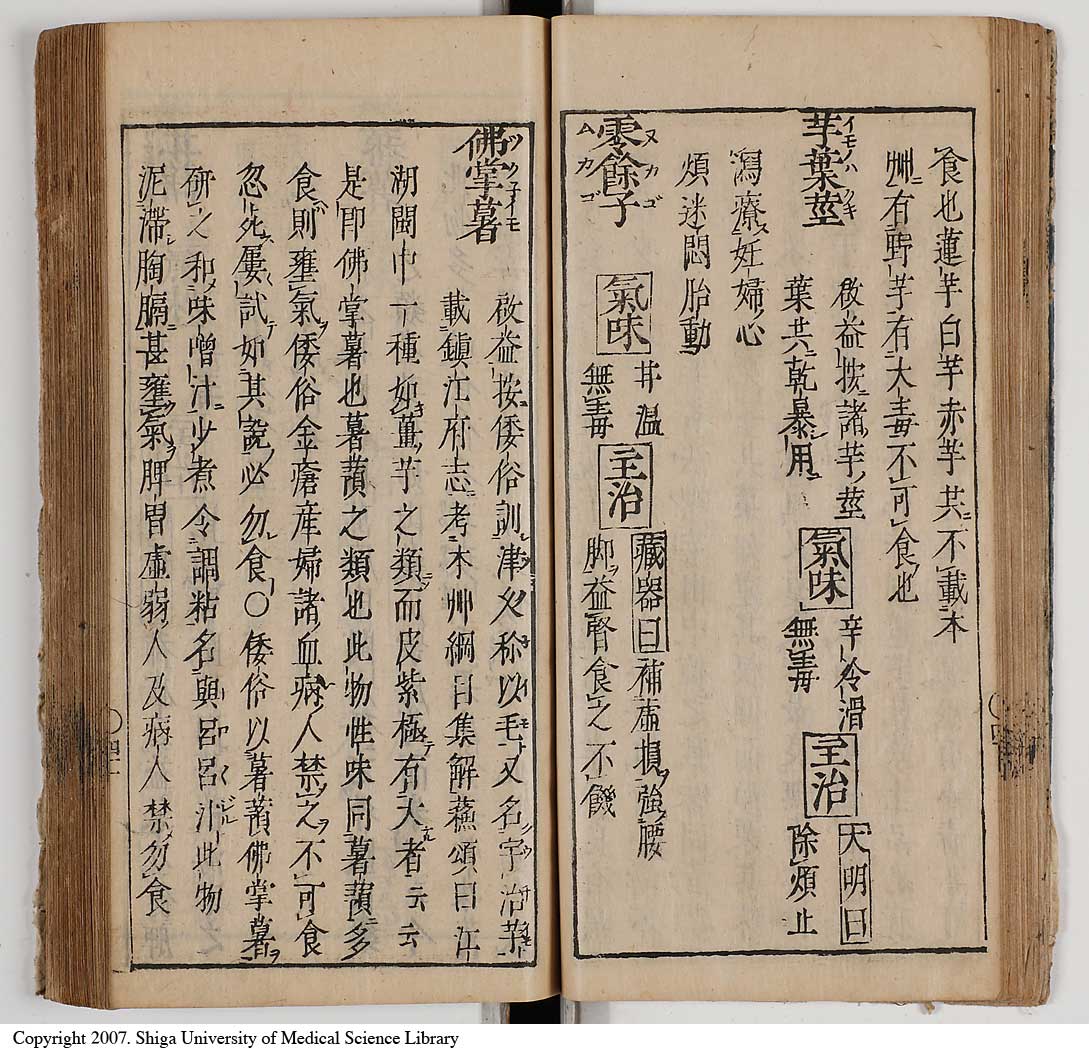 食也蓮芋白芋赤芋共不載本
艸有野芋有大毒不可食也
芋葉莖
啟益按諸芋莖
葉共乾暴用
氣味
辛冷滑
無毒
主治
大明曰
除煩止
瀉療妊婦心
煩迷悶胎動
零餘子
氣味
甘温
無毒
主治
藏器曰補虛損強腰
脚益腎食之不饑
佛掌薯
啟益按倭俗訓津久称以毛又名宇治芋
載鎮江府志考本艸綱目集解蘇頌曰江
湖閩中一種如薑芋之類而皮紫極有大者云云
是即佛掌薯也薯蕷之類也此物性味同薯蕷多
食則壅氣倭俗金瘡産婦諸血病人禁之不可食
忽死屢試如其說必勿食〇倭俗以薯蕷佛掌薯
研之和味噌汁少煮令調粘名與呂呂汁此物之
泥滯胸膈甚壅氣脾胃虛弱人及病人禁勿食
Copyright 2007. Shiga University of Medical Science Library